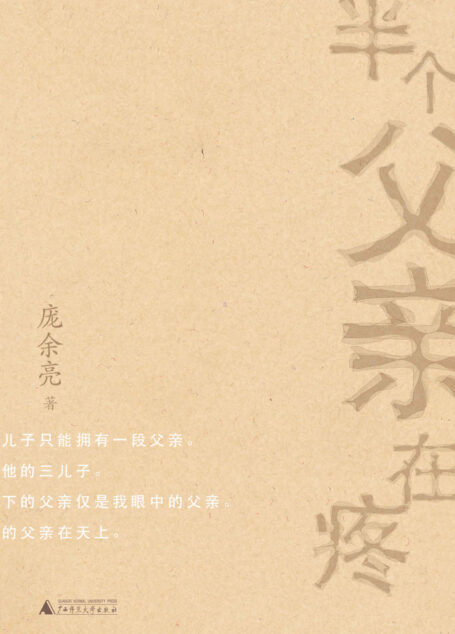 半个父亲在疼
庞余亮
著
儿子只能拥有一段父亲。
他的三儿子。
下的父亲仅是我眼中的父亲。
的父亲在天上。
GUANGXI NORMAL UNIVERSITY PRESS
广西师范大学出版社